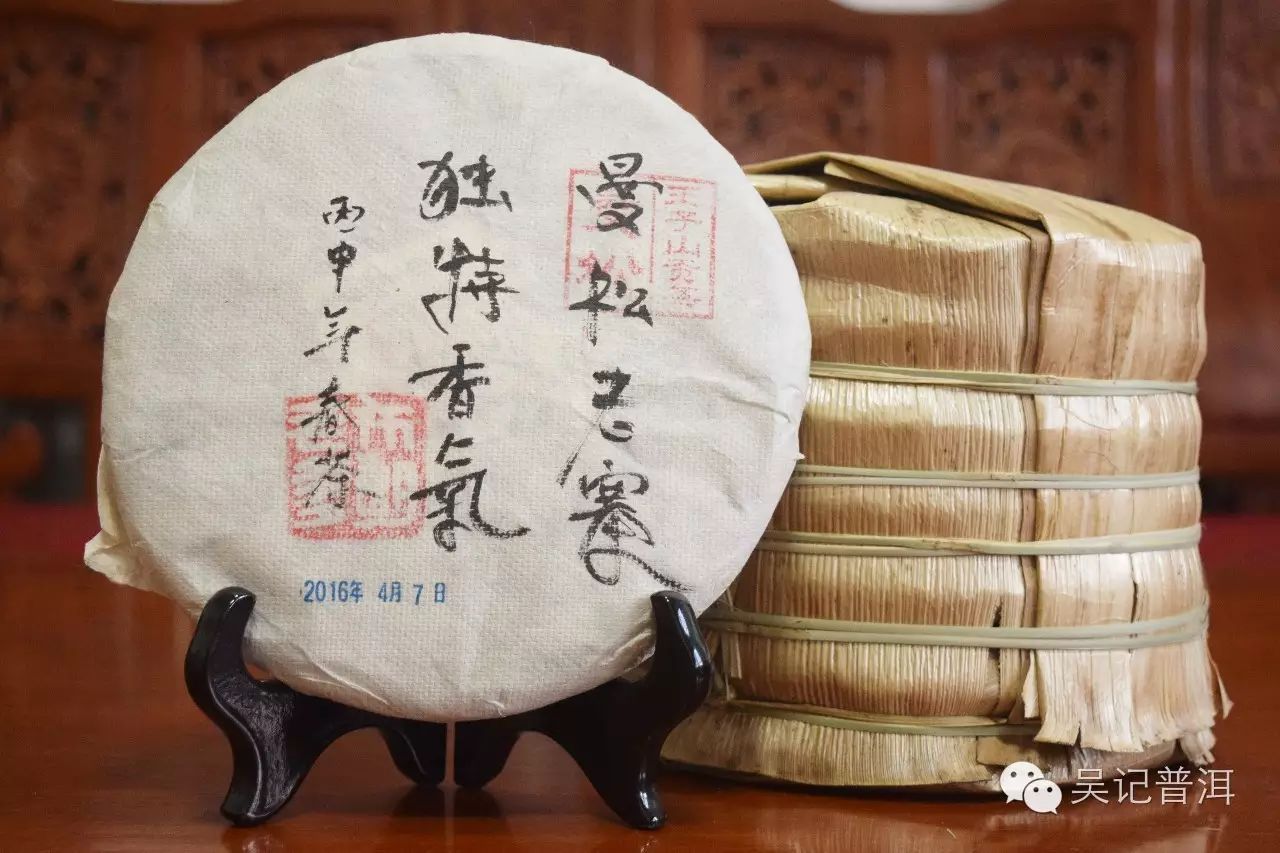 王子山贡茶
曼松老寨
独特香氣
丙申年春茶
2016年 4月 7日
吴记普洱